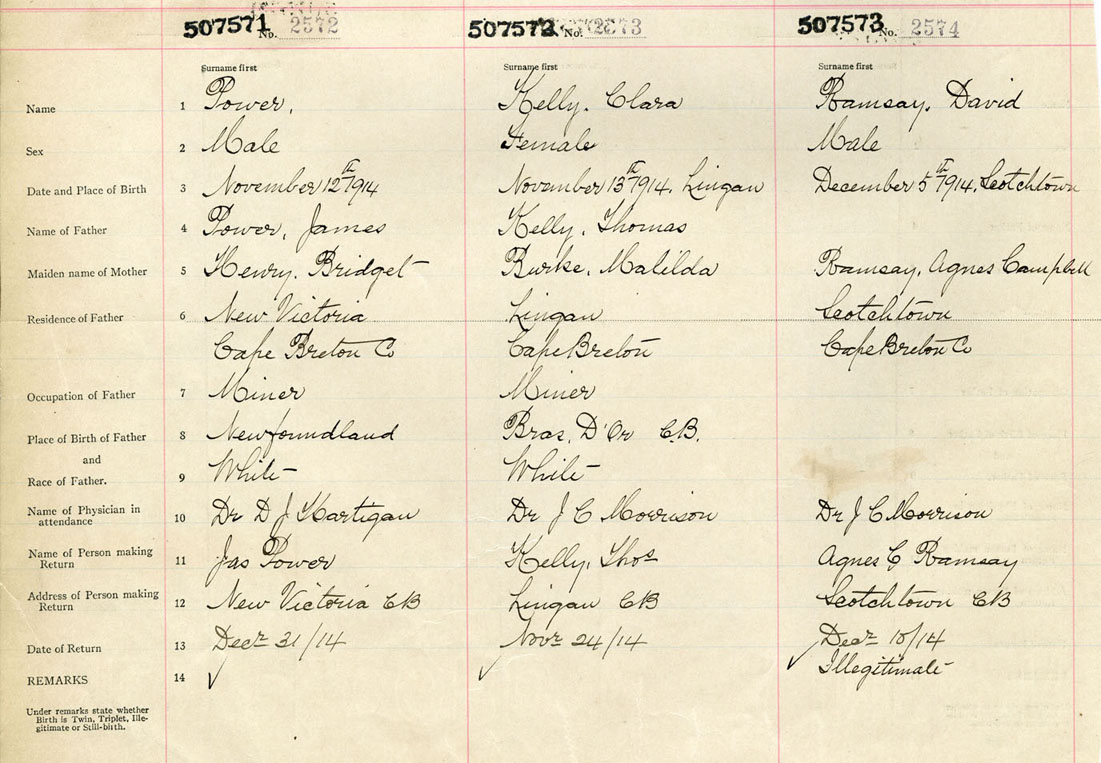 507571 No. 2572 507572 No. 2573 507573 No. 2574
Surname first Surname first Surname first
Name 1 Power, Kelly, Clara Ramsay, David
Sex 2 Male Female Male
Date and Place of Birth 3 November 12th 1914 November 13th 1914, Lingan December 5th 1914, Scotchtown
Name of Father 4 Power, James Kelly, Thomas
Maiden name of Mother 5 Henry, Bridget Burke, Matilda Ramsay, Agnes Campbell
Residence of Father 6 New Victoria Lingan Scotchtown
Cape Breton Co Cape Breton Cape Breton Co
Occupation of Father 7 Miner Miner
Place of Birth of Father 8 Newfoundland Bras. D'Or C.B.
and
Race of Father. 9 White White
Name of Physician in
attendance 10 Dr D J Hartigan Dr J C Morrison Dr J C Morrison
Name of Person making
Return 11 Jas Power Kelly, Thos Agnes C Ramsay
Address of Person making
Return 12 New Victoria CB Lingan CB Scotchtown CB
Date of Return 13 Decr 31/14 Novr 24/14 Decr /14
REMARKS 14 Illegitimate
Under remarks state whether
Birth is Twin, Triplet, Ille-
gitimate or Still-birth.